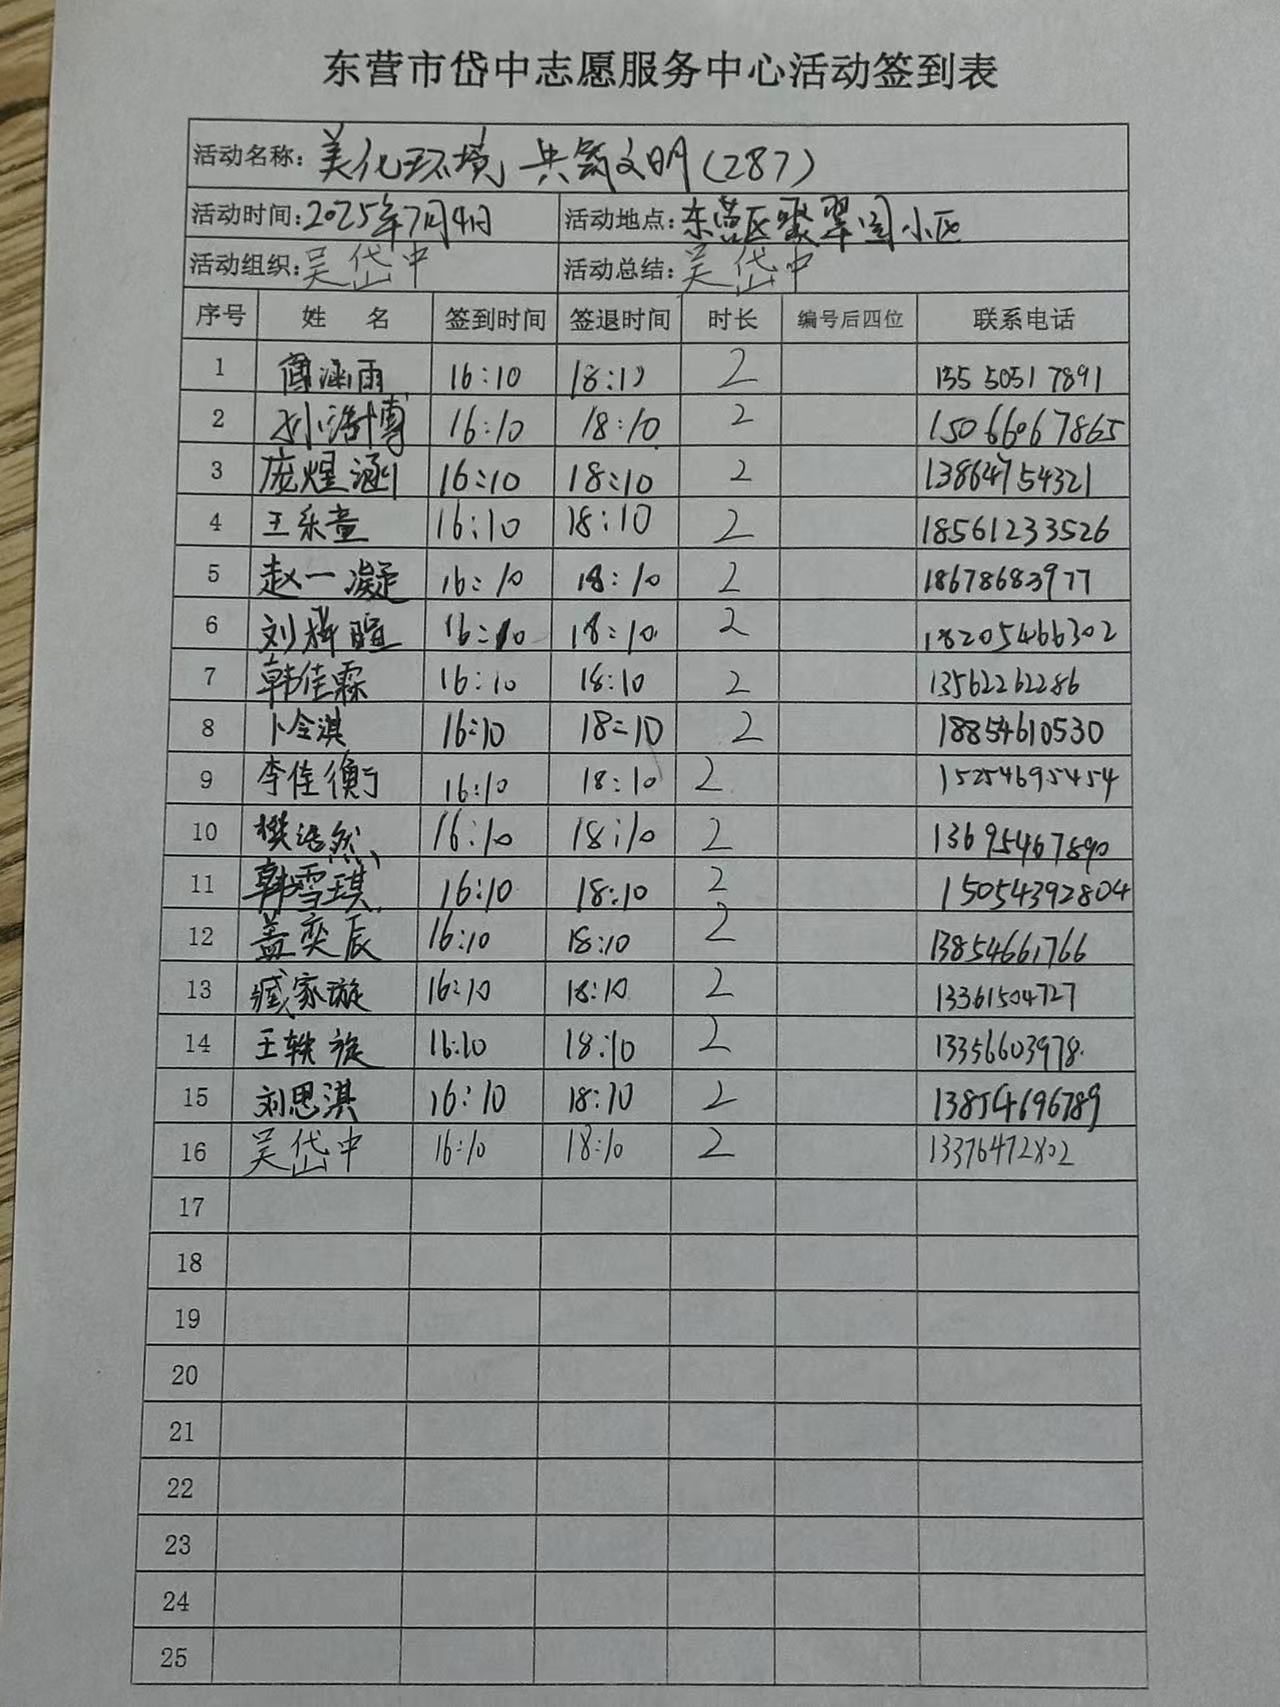 东营市岱中志愿服务中心活动签到表
活动名称：美化环境 共筑文明(287)
活动时间：2025年7月4日 活动地点：东营区聚翠园小区
活动组织：吴岱中 活动总结：吴岱中
序号 姓 名 签到时间 签退时间 时长 编号后四位 联系电话
1 涵雨 16:10 18:10 2 13550517891
2 孙浩博 16:10 18:10 2 15066067865
3 庞煜涵 16:10 18:10 2 13864754321
4 王乐童 16:10 18:10 2 18561233526
5 赵一凝 16:10 18:10 2 18678683977
6 刘梓暄 16:10 18:10 2 18205466302
7 韩佳霖 16:10 18:10 2 13562262286
8 卜令淇 16:10 18:10 2 18854610530
9 李佳衡 16:10 18:10 2 15254695454
10 樊浩然 16:10 18:10 2 13695467890
11 韩雪琪 16:10 18:10 2 15054392804
12 盖奕辰 16:10 18:10 2 13854661766
13 臧家璇 16:10 18:10 2 13361504727
14 王轶旋 16:10 18:10 2 13356603978
15 刘思淇 16:10 18:10 2 13854696789
16 吴岱中 16:10 18:10 2 13376472802
17
18
19
20
21
22
23
24
25